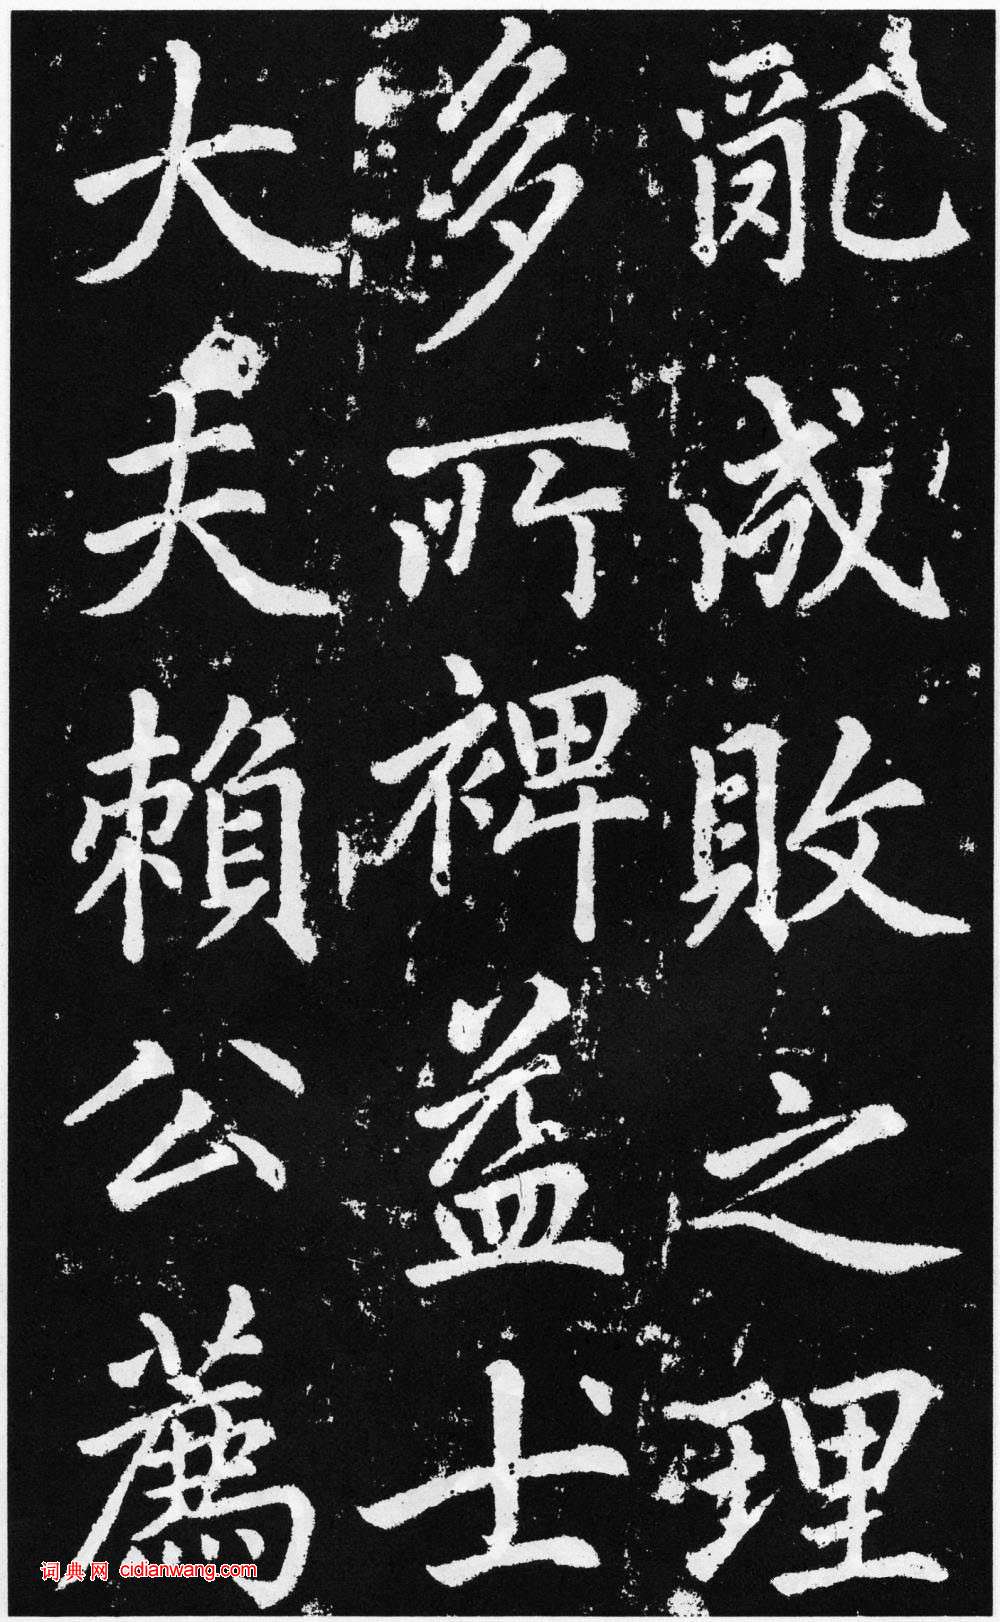 亂成敗之理
多所裨益士
大夫賴公薦
词典网 cidianwang.com